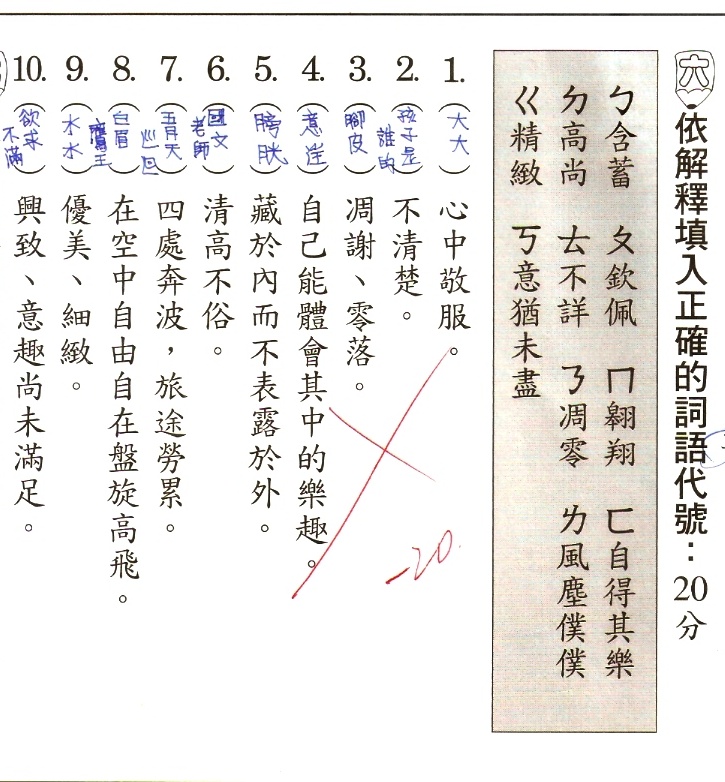 六、依解釋填入正確的詞語代號：20分
ㄅ含蓄 ㄆ欽佩 ㄇ翱翔 ㄈ自得其樂
ㄉ高尚 ㄊ不詳 ㄋ凋零 ㄌ風塵僕僕
ㄍ精緻 ㄎ意猶未盡
1.（大大）心中敬服。
2.（孩子是誰的）不清楚。
3.（腳皮）凋謝、零落。
4.（意淫）自己能體會其中的樂趣。
5.（膀胱）藏於內而不表露於外。
6.（國文老師）清高不俗。
7.（五月天巡回）四處奔波，旅途勞累。
8.（白眉鷹王）在空中自由自在盤旋高飛。
9.（水水）優美、細緻。
10.（欲求不滿）興致、意趣尚未滿足。
-20